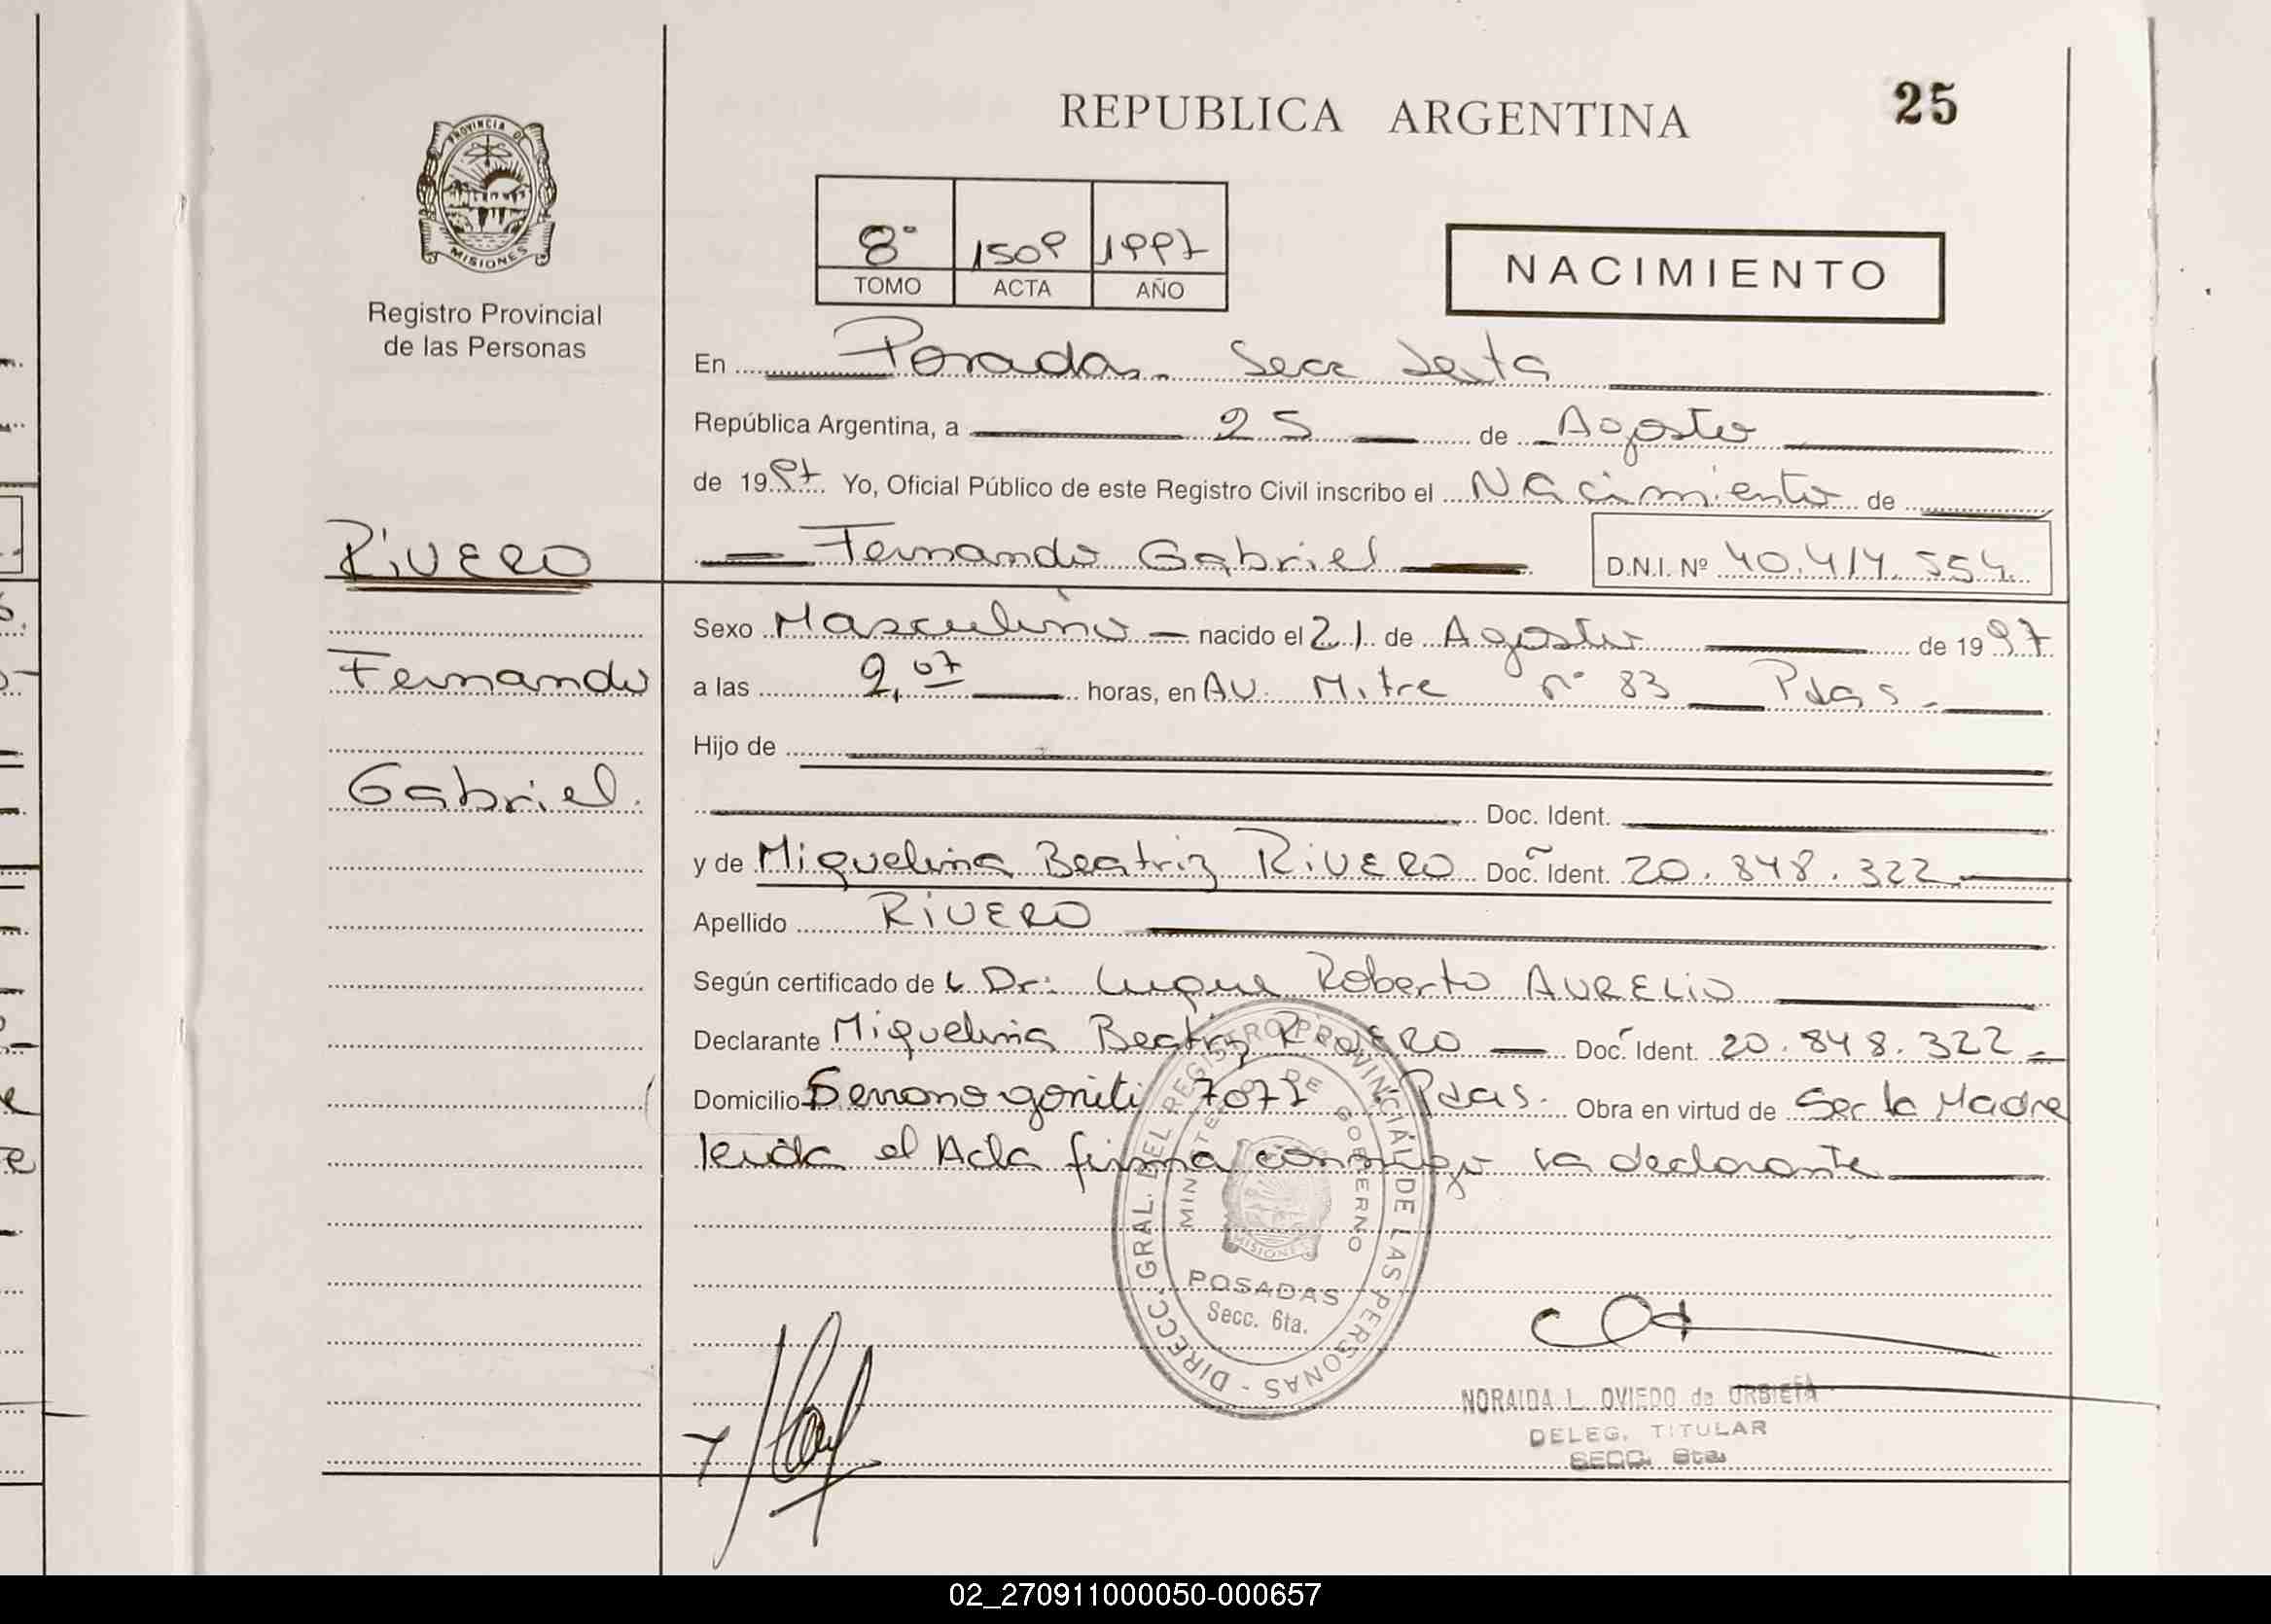 REPUBLICA ARGENTINA
25
PROVINCIA DE
MISIONES
Registro Provincial
de las Personas
8° 1509 1997
TOMO ACTA AÑO
NACIMIENTO
En Posadas. Secc Sexta
República Argentina, a 25 de Agosto
de 1997 Yo, Oficial Público de este Registro Civil inscribo el Nacimiento de
RIVERO
Fernando Gabriel D.N.I. Nº 40.414.554.
Sexo Masculino nacido el 21 de Agosto de 1997
Fernando
a las 2,07 horas, en AV. Mitre nº 83 Pdas.
Hijo de
Gabriel.
Doc. Ident.
y de Miquelina Beatriz RIVERO Doc. Ident. 20.848.322
Apellido RIVERO
Según certificado de Dr: Luque Roberto AURELIO
Declarante Miquelina Beatriz RIVERO Doc. Ident. 20.848.322
Domicilio Pdas. Obra en virtud de Ser la Madre
leida el Acta firma conmigo la declarante
DIRECC. GRAL. DEL REGISTRO PROVINCIAL DE LAS PERSONAS -
MINISTERIO DE GOBIERNO
MISIONES
POSADAS
Secc. 6ta.
NORAIDA L. OVIEDO de URBIETA
DELEG. TITULAR
SECC. 6ta.
02_270911000050-000657